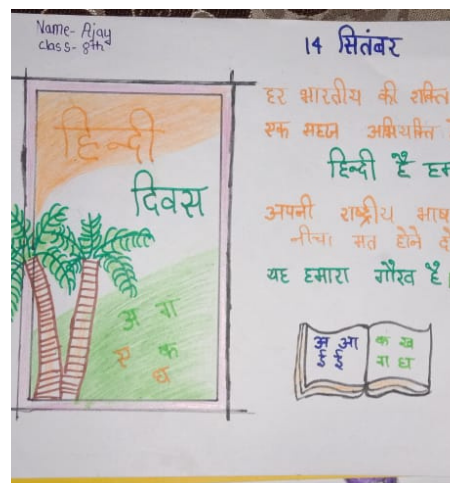 Name- Ajay
class- 8th
14 सितंबर
हिन्दी
दिवस
हर भारतीय की शक्ति
एक सहज अभिव्यक्ति
हिन्दी है हम
अपनी राष्ट्रीय भाष
नीचा मत होने दो
यह हमारा गौरव है।
अ ग
ए क
घ
अ आ
इ ई
क ख
ग घ